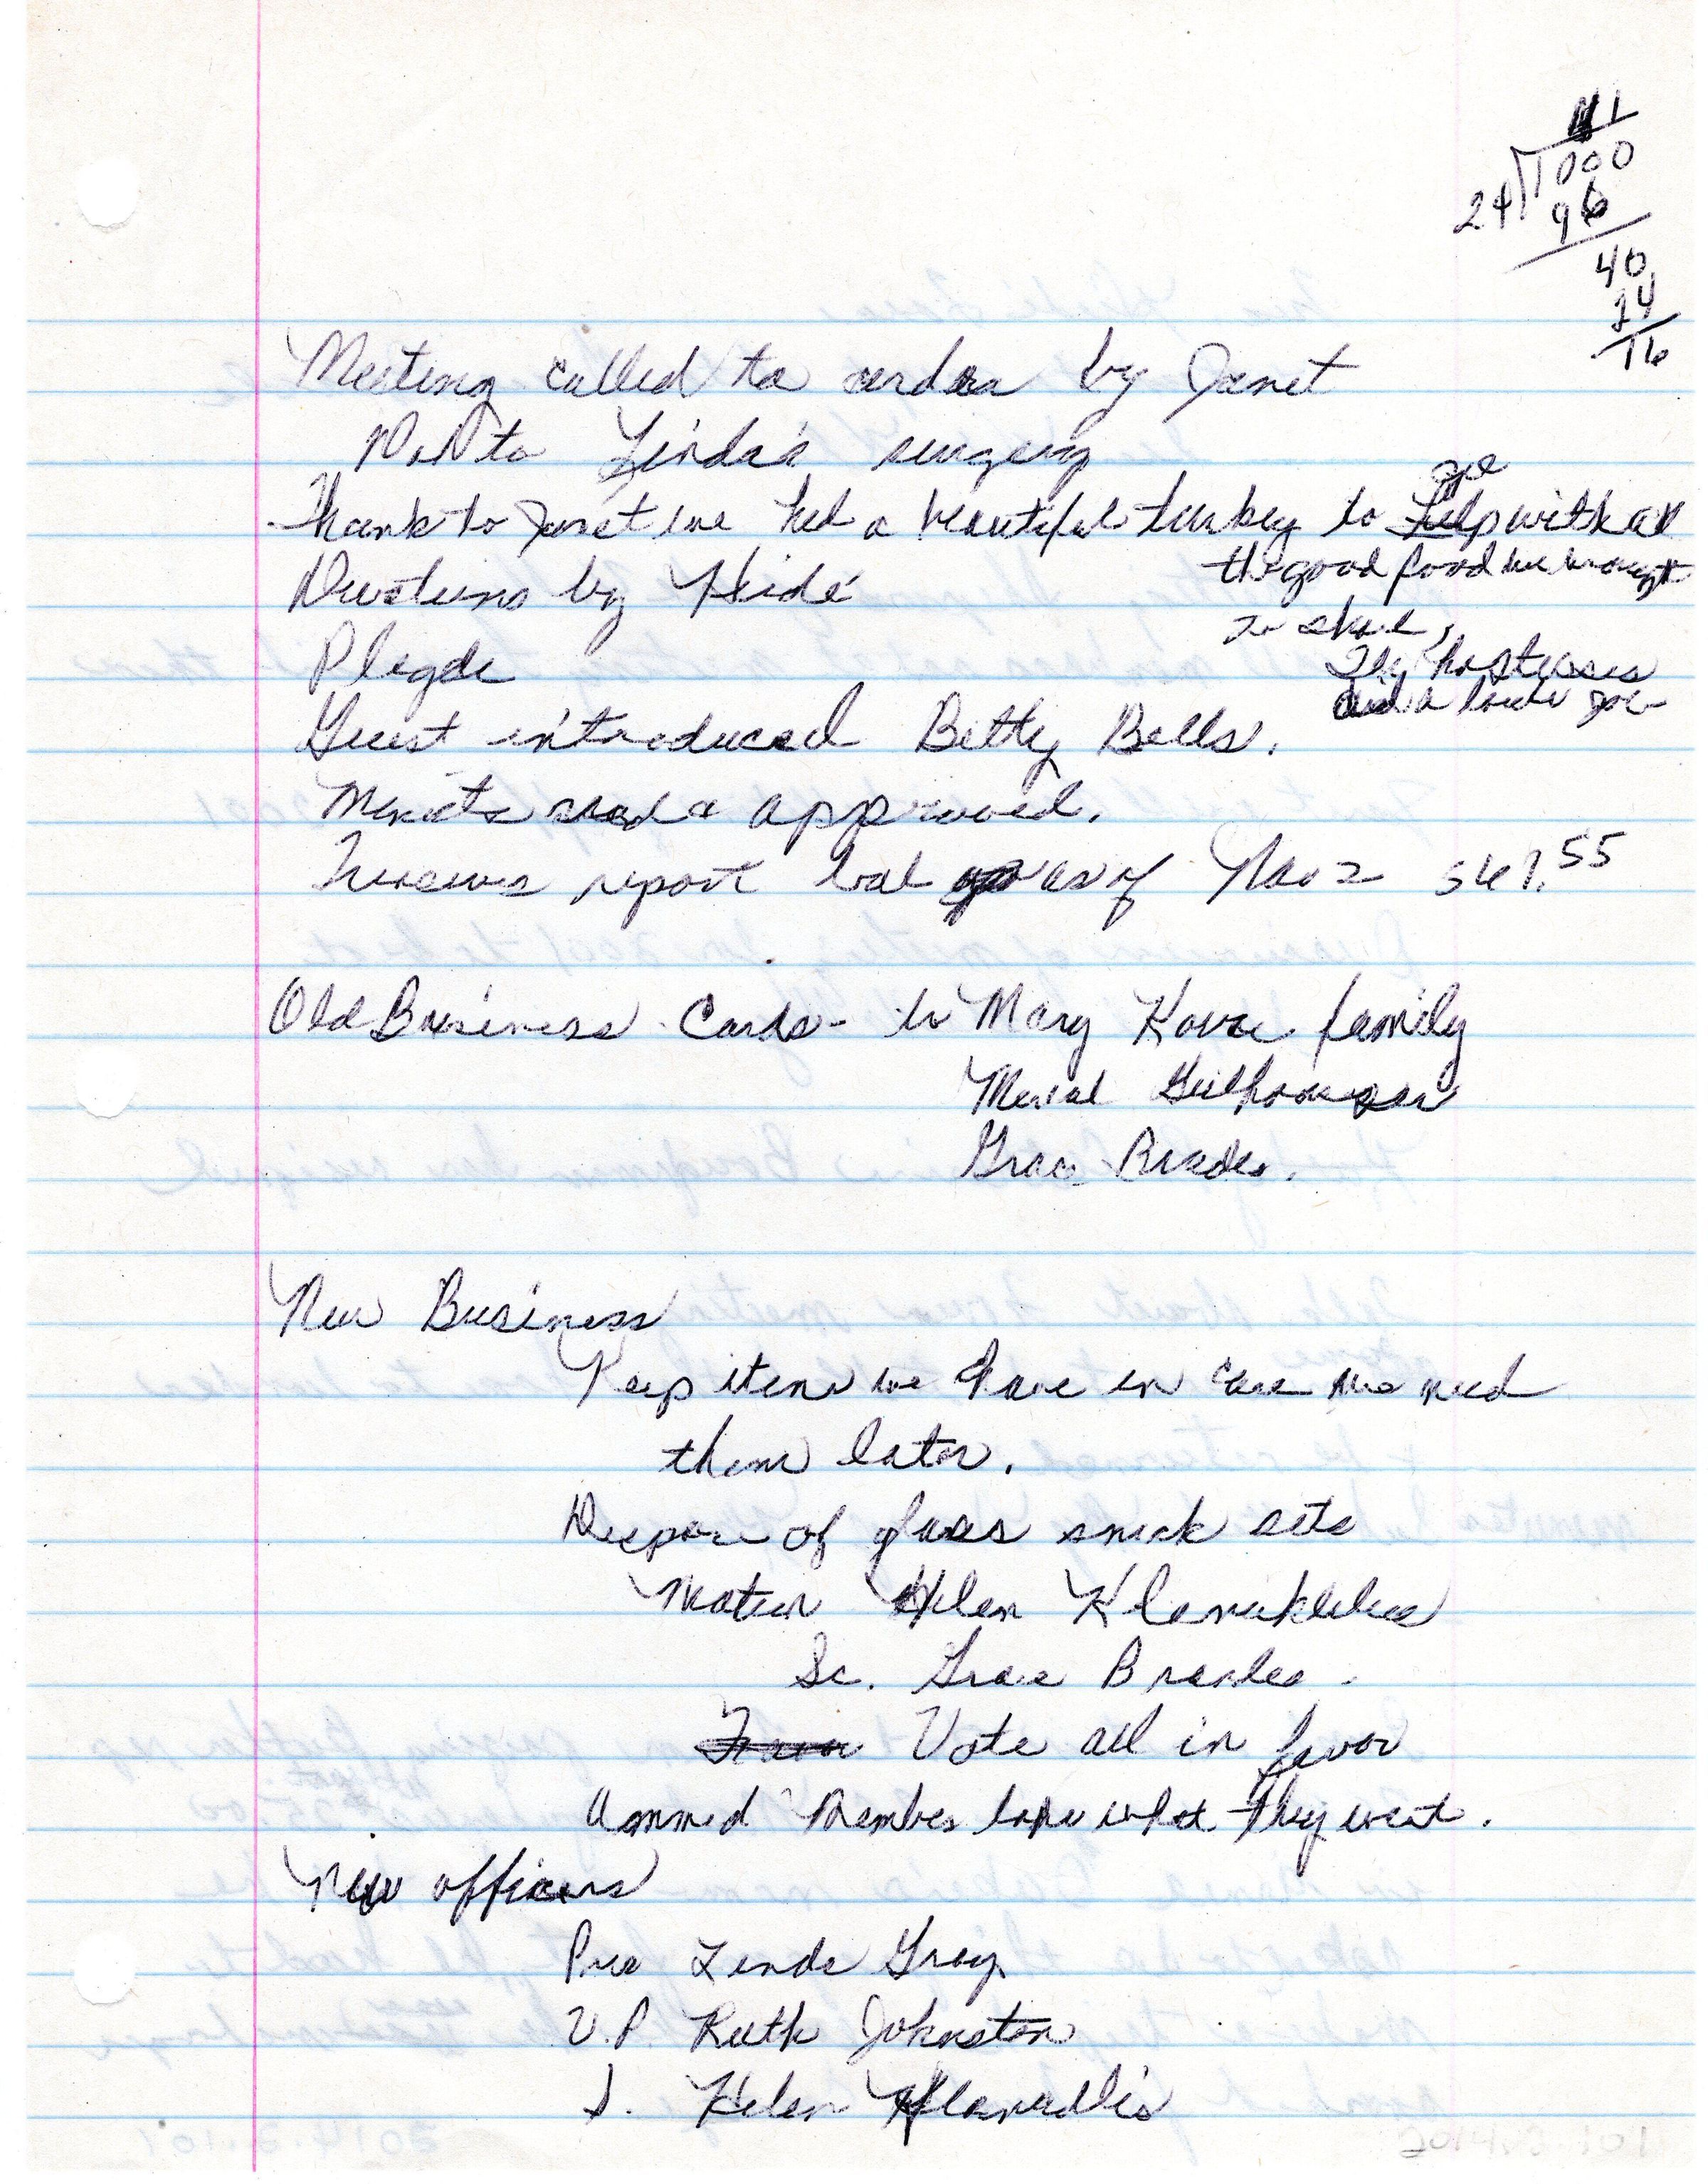 41
24 1000
96
40
24
16
Meeting called to order by Janet
Linda's surgery
Thank to Janet we had a beautiful turkey to go with all
the good food we brought
to share,
The hostesses
did a
Devotions by Heidi
Plegde
Guest introduced Betty Bells.
Minuts read & approved.
report bal as of Nov 2 561.55
Old Business - Cards - to Mary family
Grace
New Business
Keep items we have in case we need
them later.
Dispose of glass snack sets
Motion Helen
Sc. Grace
Vote all in favor
Ammed Member take what they want.
New officers
Pres Linda Gray
V.P. Ruth Johnston
S. Helen